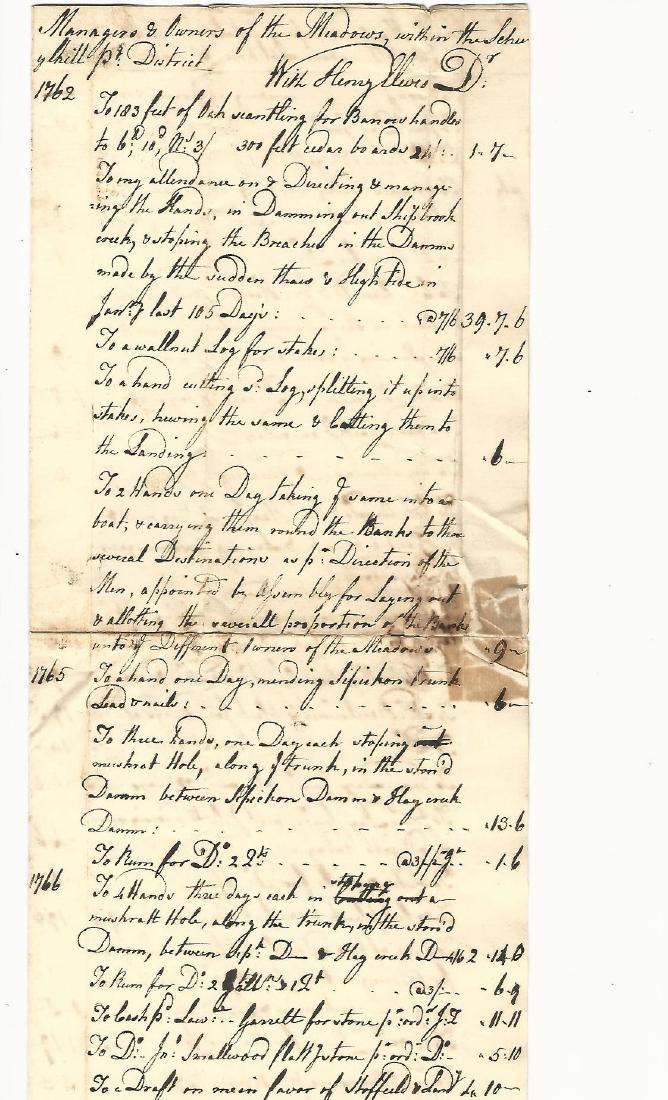 Managers & Owners of the Meadows, within the Schuy
ylkill pt. District
With Henry Elwes Dr.
1762
To 183 feet of Oak scantling for Barrow handles
to 6d, 10d, Ns 3/ 300 feet cedar boards 24/ : 1-7-
To my attendance on & Directing & manage-
-ing the Hands, in Damming out Shipbrook
creek, & stoping the Breaches in the Damms
made by the sudden thaw & High tide in
Janry last 105 Days : - - - - @7/6 39.7.6
To a wallnut Log for stakes : - - - - 7/6 "7.6
To a hand cutting sd. Log, splitting it up into
stakes, hewing the same & Getting them to
the Landing - - - - - - - "6-
To 2 Hands one Day taking ye same into a
boat, & carrying them round the Banks to thee
several Destinations as pr. Direction of the
Men, appointed by Assembly for Laying out
& allotting the severall proportion of the Banks
unto ye Different owners of the Meadows "9-
1765
To a hand one Day, mending Sepickon trunk
Lead & nails : - - - - - - "6-
To three hands, one Day each stoping out
muskrat Hole, along ye trunk, in the ston'd
Damm between Sepickon Damm & Hay creek
Damm : - - - - - - - - "13.6
To Rum for Do. 2 Qts - - - - @3/ pr. Gt. - "1.6
1766
To 4 Hands three days each in stoping a
muskratt Hole, along the trunk, in the ston'd
Damm, between Sepk. D— & Hay creek D— 4/6 2 "14.0
To Rum for Do. 2 Galls. & 1 Qt - - @3/- - "6.9
To Cash pd. Lawce. Garrett for stone pr. ordr. J:Z "11-11
To Do. Jno. Smallwood flatt of stone pr. ord. Do. - "5.10
To a Draft on me in favor of Stoffield & Land 4 10-